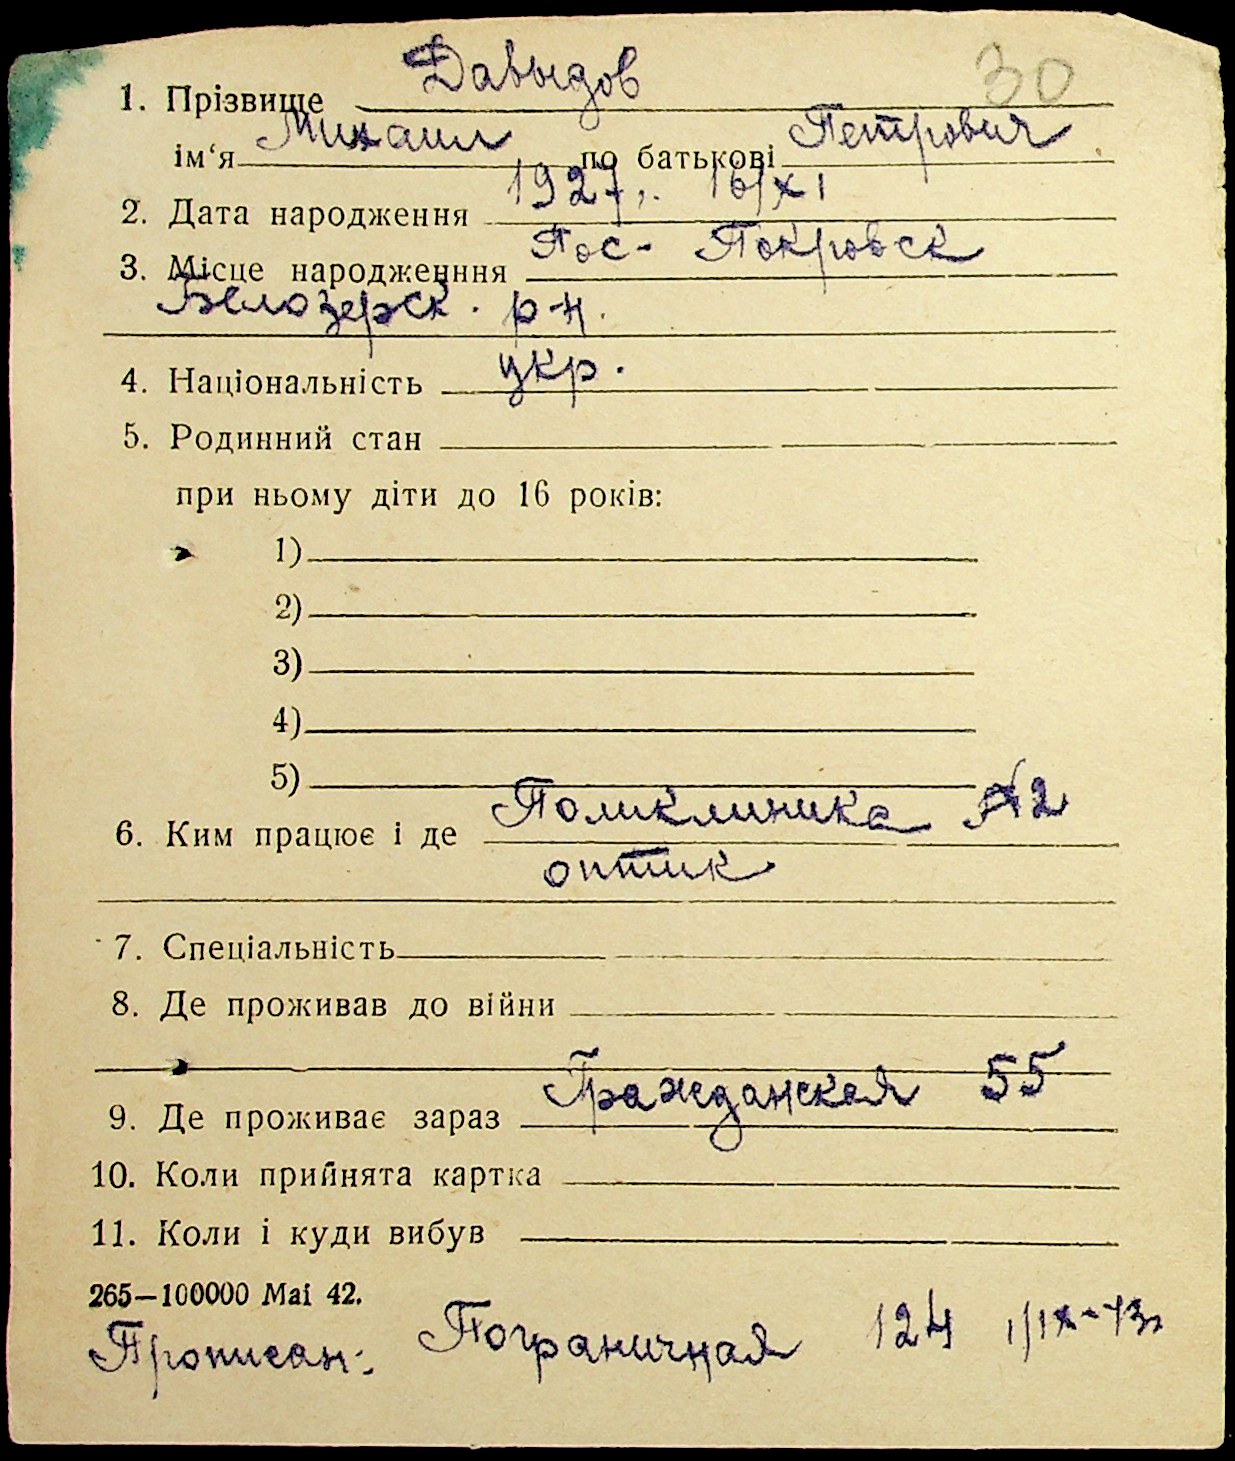 30
1. Прізвище Давыдов
ім‘я Михаил по батькові Петрович
2. Дата народження 1927г. 16/XI
3. Місце народженння Пос- Покровск
Белозерск. р-н.
4. Національність укр.
5. Родинний стан
при ньому діти до 16 років:
1)
2)
3)
4)
5)
6. Ким працює і де Поликлиника №2
оптик
7. Спеціальність
8. Де проживав до війни
9. Де проживає зараз Гражданская 55
10. Коли прийнята картка
11. Коли і куди вибув
265—100000 Маі 42.
Прописан: Пограничная 124 1/IX-43г